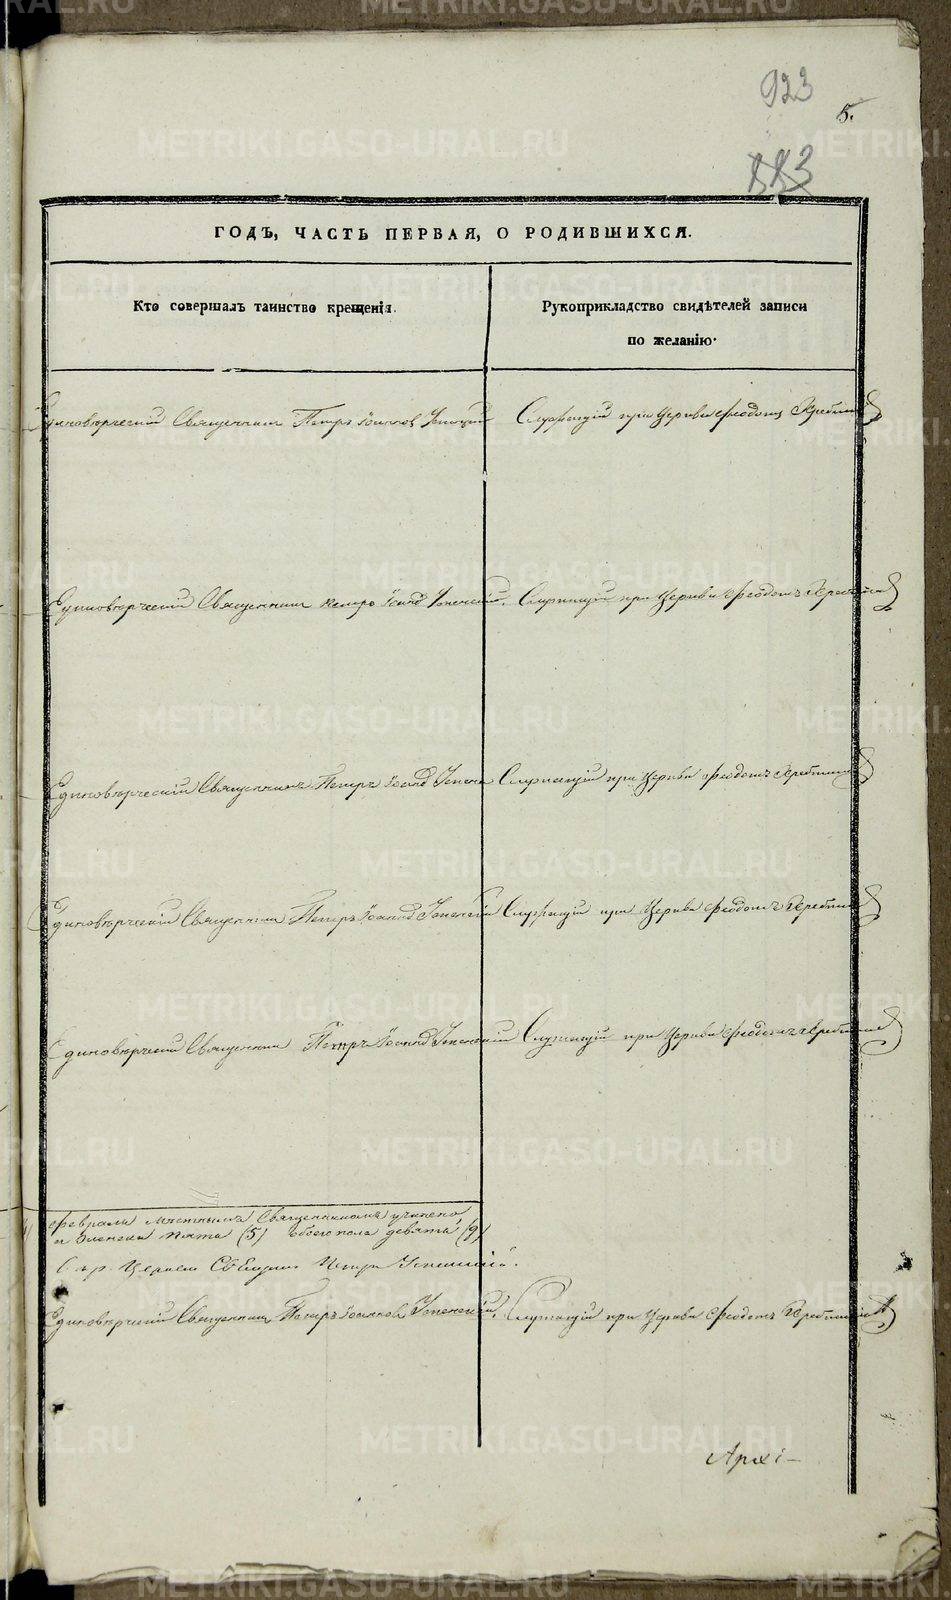 923
5.
883
ГОДЪ, ЧАСТЬ ПЕРВАЯ, О РОДИВШИХСЯ.
Кто совершалъ таинство крещенія.
Рукоприкладство свидѣтелей записи
по желанію.
Единовѣрческий Священникъ Петръ Іоанновъ
Служащій при Церкви Феодотъ
Единовѣрческий Священникъ петръ Іоаннов Успенскій.
Служащій при Церкви Феодотъ
Единовѣрческій Священникъ Петръ Іоаннов Успенс
Служащій при Церкви Феодотъ
Единовѣрческій Священникъ Петръ Іоаннов Успенскій
Служащій при Церкви Феодотъ
Единовѣрческий Священникъ Петръ Іоаннов Успенский
Служащій при Церкви Феодотъ
Февраль мѣстнымъ Священникомъ учинено
и Женска пята (5) обоего пола девять (9)
Священникъ Петръ Успенскій.
Единовѣрчский Священникъ Петръ Іоаннов Успенскій.
Служащій при Церкви Феодотъ
Архі-
METRIKI.GASO-URAL.RU